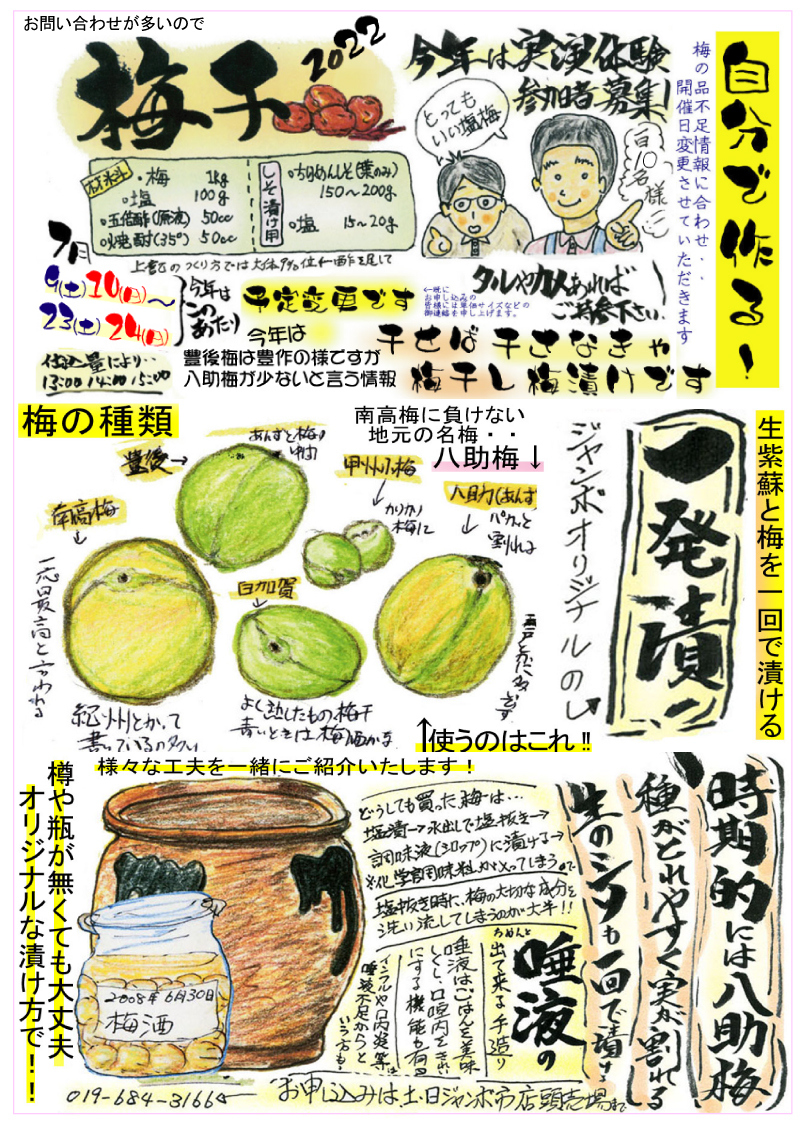 お問い合わせが多いので
梅干
2022
今年は実演体験
参加者募集!
自分で作る!
梅の品不足情報に合わせ・・
開催日変更させていただきます
とっても
いい塩梅
百10名様
材料
・梅 1kg
・塩 100g
・五倍酢(原液) 50cc
・焼酎(35°) 50cc
しそ漬け用
・ちりめんしそ(葉のみ)
150〜200g
・塩 15〜20g
7月
9(土)10(日)〜
23(土)24(日)
今年は
このあたり
予定変更です
タルや力人あれば
ご持参下さい.
←既に
お申し込みの
皆様には単価サイズなどの
御連絡を申し上げます。
仕込量により・・
13:00 14:00 15:00
今年は
豊後梅は豊作の様ですが
八助梅が少ないと言う情報
干せば 干さなきゃ
梅干し 梅漬けです
梅の種類
南高梅に負けない
地元の名梅・・
八助梅↓
豊後→
あんずと梅の
甲州小梅
カリカリ
梅に
八助(あんず
パカッと
割れる
南高梅
一応最高と言われる
白加賀
紀州とかって
書いているの多い
よく熟したもの梅干
青いときは梅酒かな
↑使うのはこれ!!
ジャンボオリジナルの
一発漬
生紫蘇と梅を一回で漬ける
様々な工夫を一緒にご紹介いたします!
樽や瓶が無くても大丈夫
オリジナルな漬け方で!!
2008年6月30日
梅酒
どうしても買った梅は…
塩漬→水出しで塩抜き→
調味液(シロップ)に漬ける→
※化学調味料が入ってしまうので
塩抜き時に、梅の大切な成分を
洗い流してしまうのが大半!!
唾液の
ちゃんと
出て来る手造り
唾液はごはんを美味
しくし、口腔内をきれい
にする機能も有る
インフルや口内炎等は
唾液不足からと
いう方も・
時期的には八助梅
種がとれやすく実が割れる
生のシソも一回で漬ける
019-684-3166←
お申し込みは、土・日ジャンボ市店頭売場まで